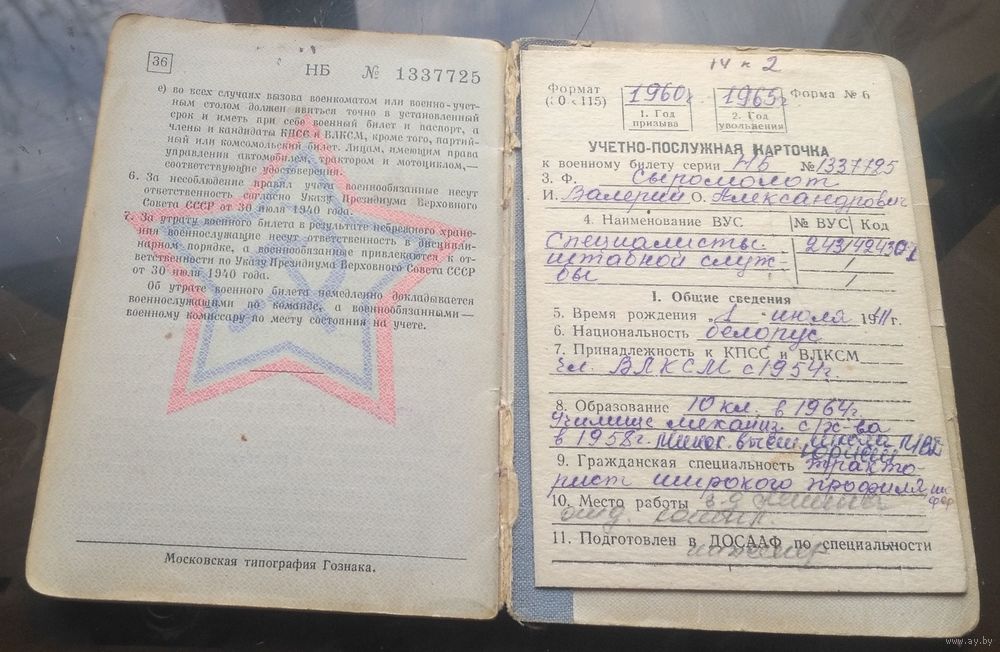 36
НБ № 1337725
е) во всех случаях вызова военкоматом или военно-учет-
ным столом должен явиться точно в установленный
срок и иметь при себе военный билет и паспорт, а
члены и кандидаты КПСС и ВЛКСМ, кроме того, партий-
ный или комсомольский билет. Лицам, имеющим права
управления автомобилем, трактором и мотоциклом,—
соответствующие удостоверения.
6. За несоблюдение правил учета военнообязанные несут
ответственность согласно Указу Президиума Верховного
Совета СССР от 30 июля 1940 года.
7. За утрату военного билета в результате небрежного хране-
ния военнослужащие несут ответственность в дисципли-
нарном порядке, а военнообязанные привлекаются к от-
ветственности по Указу Президиума Верховного Совета СССР
от 30 июля 1940 года.
Об утрате военного билета немедленно докладывается
военнослужащими по команде, а военнообязанными —
военному комиссару по месту состояния на учете.
Московская типография Гознака.
Формат 1960г 1965г Форма № 6
1. Год призыва 2. Год увольнения
УЧЕТНО-ПОСЛУЖНАЯ КАРТОЧКА
к военному билету серии НБ № 1337725
3. Ф. Сыромолот
И. Валерий О. Александрович
4. Наименование ВУС. № ВУС Код
Специалисты
штабной служ-
бы
I. Общие сведения
5. Время рождения „1" июля 1941г.
6. Национальность белорус
7. Принадлежность к КПСС и ВЛКСМ
чл. ВЛКСМ с 1954г.
8. Образование 10 кл. в 1964г.
Училище механиз с/х-ва
в 1958г. Минск. высш. школа МВД
9. Гражданская специальность тракто-
рист широкого профиля,
10. Место работы
11. Подготовлен в ДОСААФ по специальности
www.ay.by